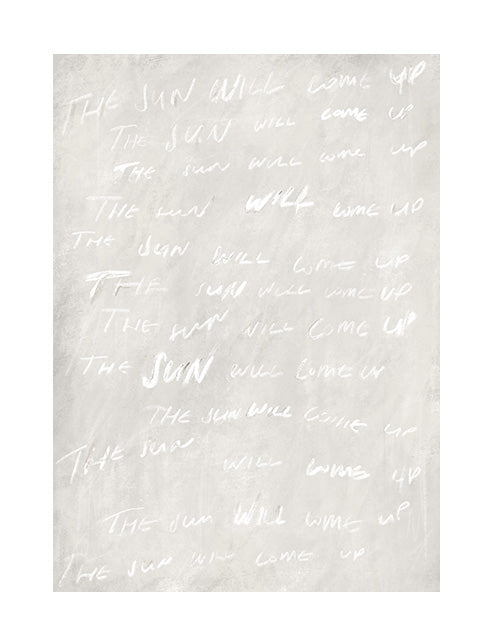 THE SUN WILL COME UP
THE SUN WILL COME UP
THE SUN WILL COME UP
THE SUN WILL COME UP
THE SUN WILL COME UP
THE SUN WILL COME UP
THE SUN WILL COME UP
THE SUN WILL COME UP
THE SUN WILL COME UP
THE SUN WILL COME UP
THE SUN WILL COME UP
THE SUN WILL COME UP